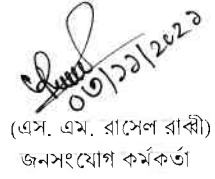 ০৩/১১/২০২১
(এস. এম. রাসেল রাব্বী)
জনসংযোগ কর্মকর্তা